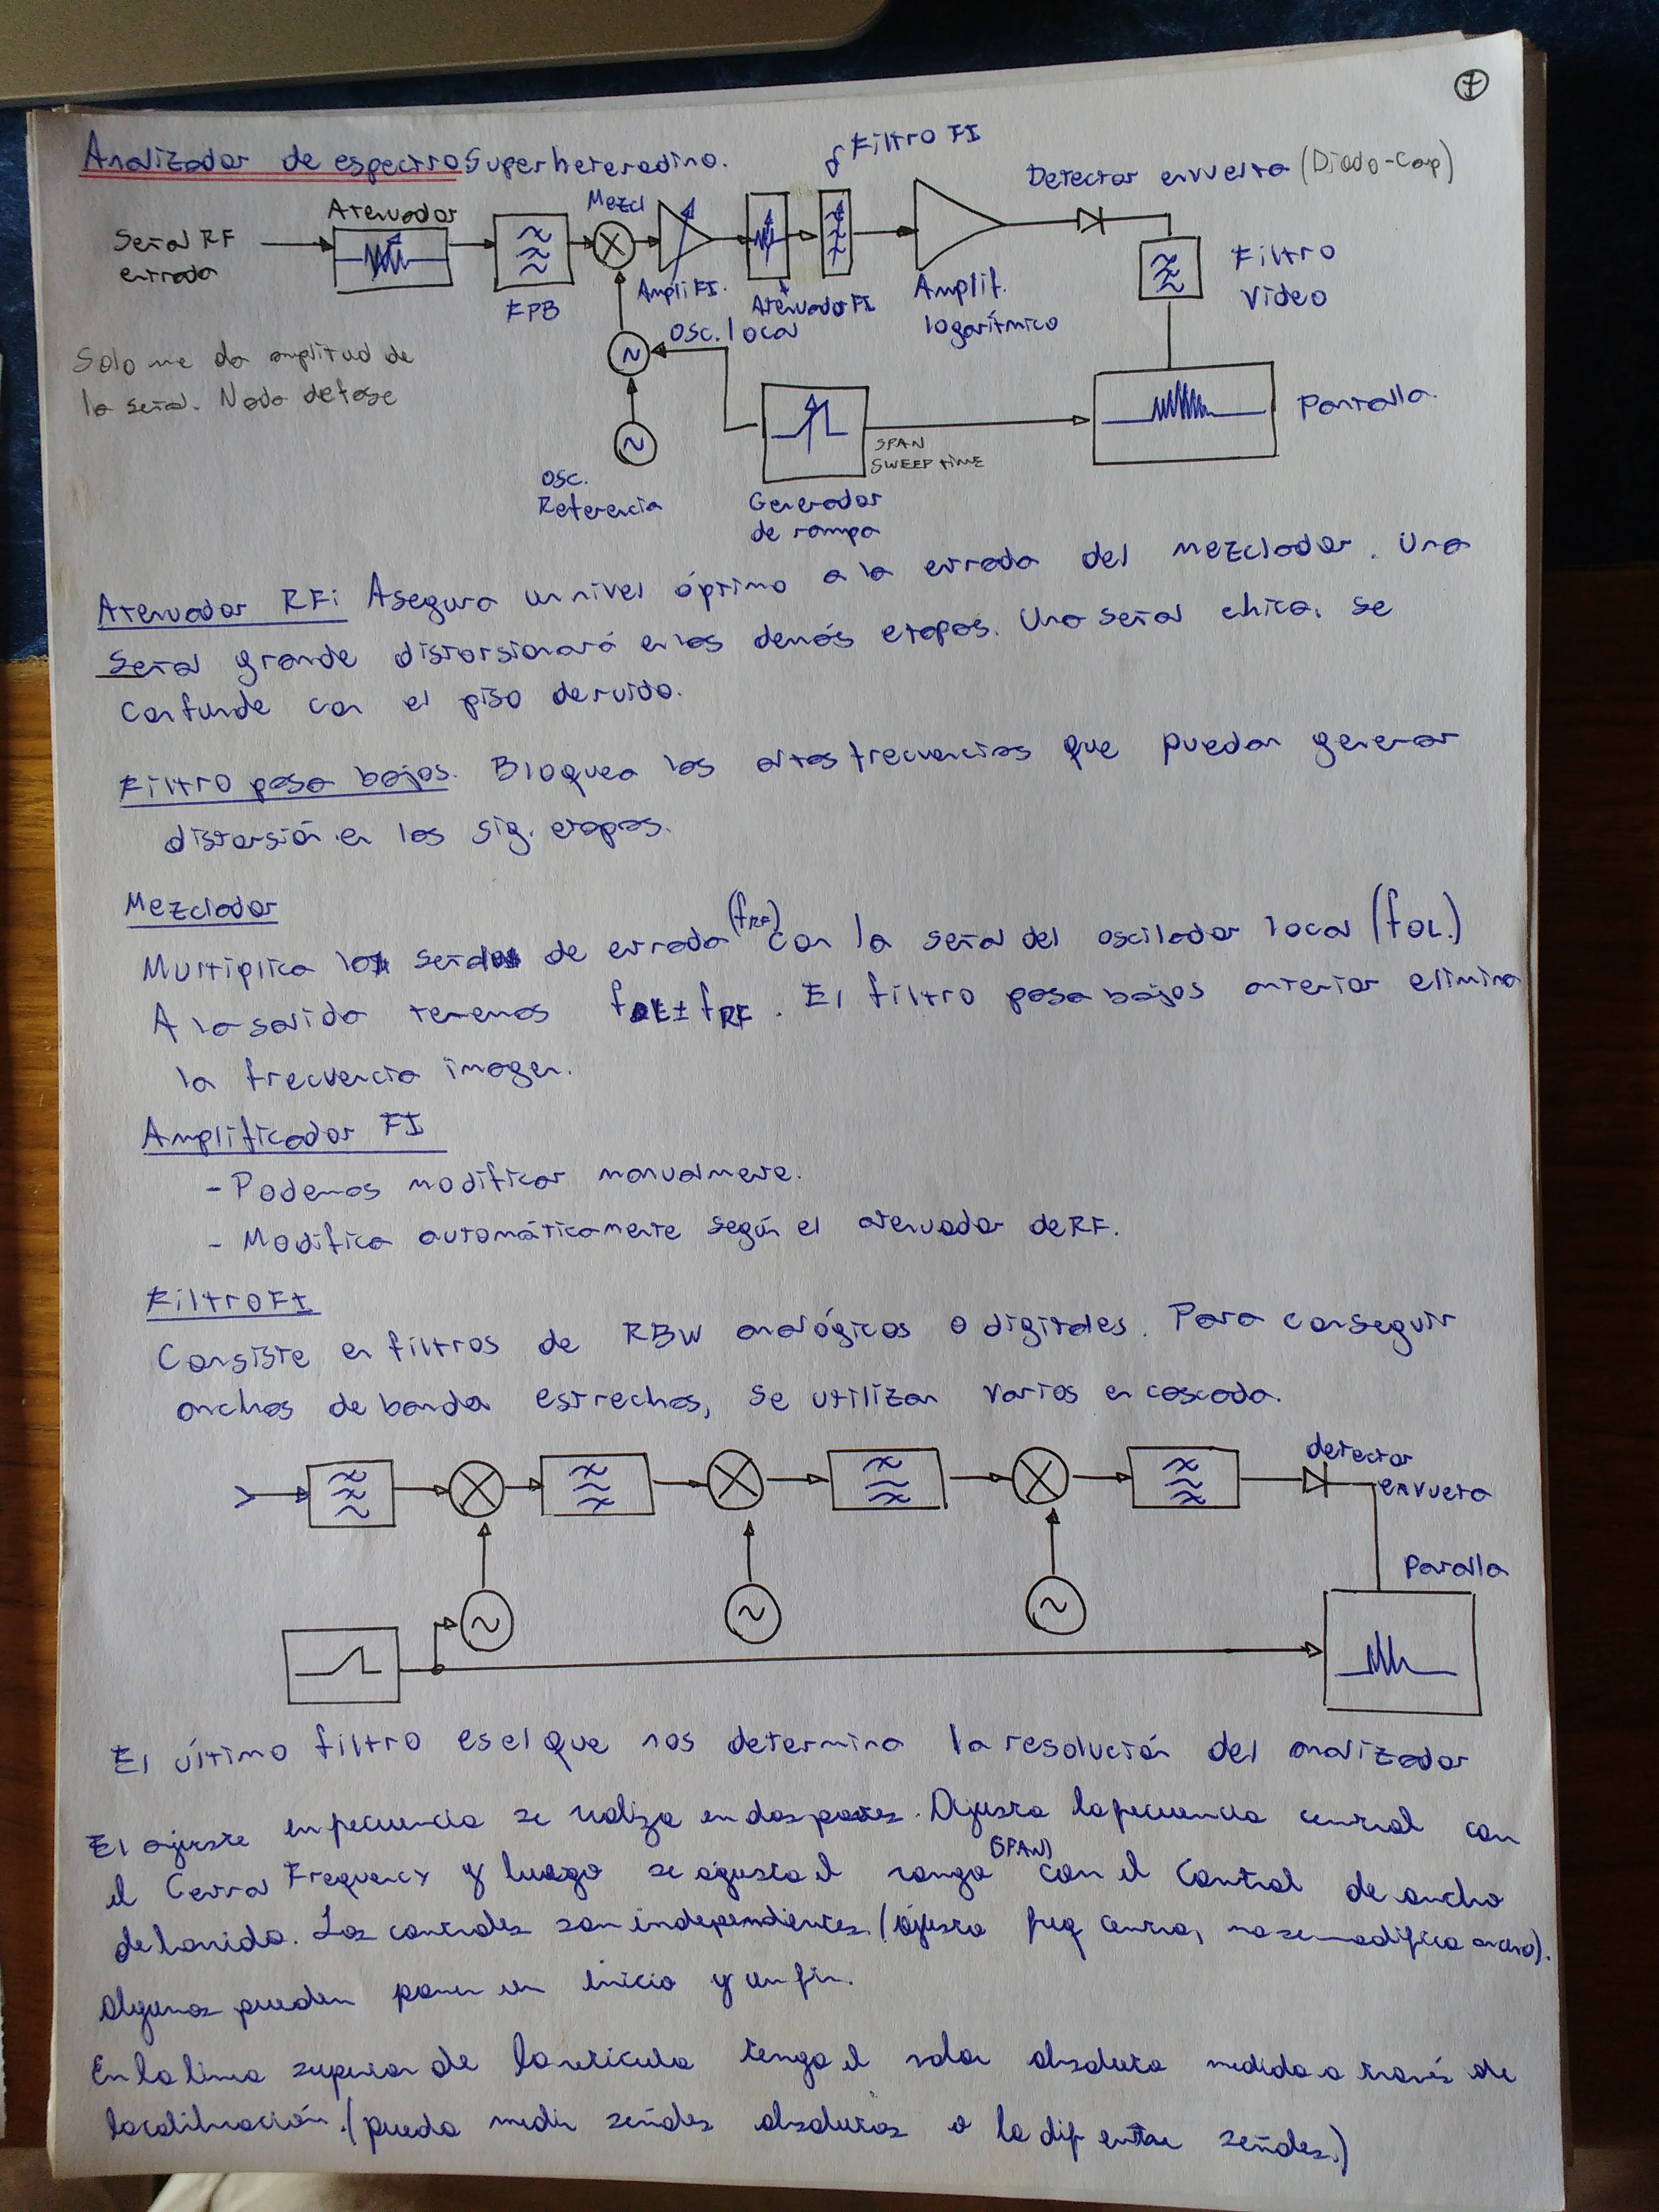 7
Analizador de espectro Superheterodino.
Filtro FI
Detector envuelta (Diodo-Cap)
Mezcl
Atenuador
Señal RF
entrada
FPB
Ampli FI.
Atenuador FI
Amplif.
logarítmico
Filtro
Video
Osc. local
Solo me da amplitud de
la señal. Nada de fase
Pantalla
SPAN
SWEEP TIME
Osc.
Referencia
Generador
de rampa
Atenuador RF: Asegura un nivel óptimo a la entrada del mezclador. Una
señal grande distorsionará en las demás etapas. Una señal chica, se
confunde con el piso de ruido.
Filtro pasa bajos. Bloquea las altas frecuencias que puedan generar
distorsión en las sig. etapas.
Mezclador
Multiplica la señal de entrada (fRF) con la señal del oscilador local (fOL.)
A la salida tenemos fOL ± fRF. El filtro pasa bajos anterior elimina
la frecuencia imagen.
Amplificador FI
- Podemos modificar manualmente.
- Modifica automáticamente según el atenuador de RF.
Filtro FI
Consiste en filtros de RBW analógicos o digitales. Para conseguir
anchos de banda estrechos, se utilizan varios en cascada.
detector
envuelta
Pantalla
El último filtro es el que nos determina la resolución del analizador
El ajuste en frecuencia se realiza en dos partes. Ajusta la frecuencia central con
el Central Frequency y luego se ajusta el rango (SPAN) con el control de ancho
de barrido. Los controles son independientes (ajusto freq central, no se modifica ancho).
Algunos pueden poner un inicio y un fin.
En la línea superior de la retícula tengo el valor absoluto medido a través de
la calibración. (puedo medir señales absolutas o la dif entre señales.)